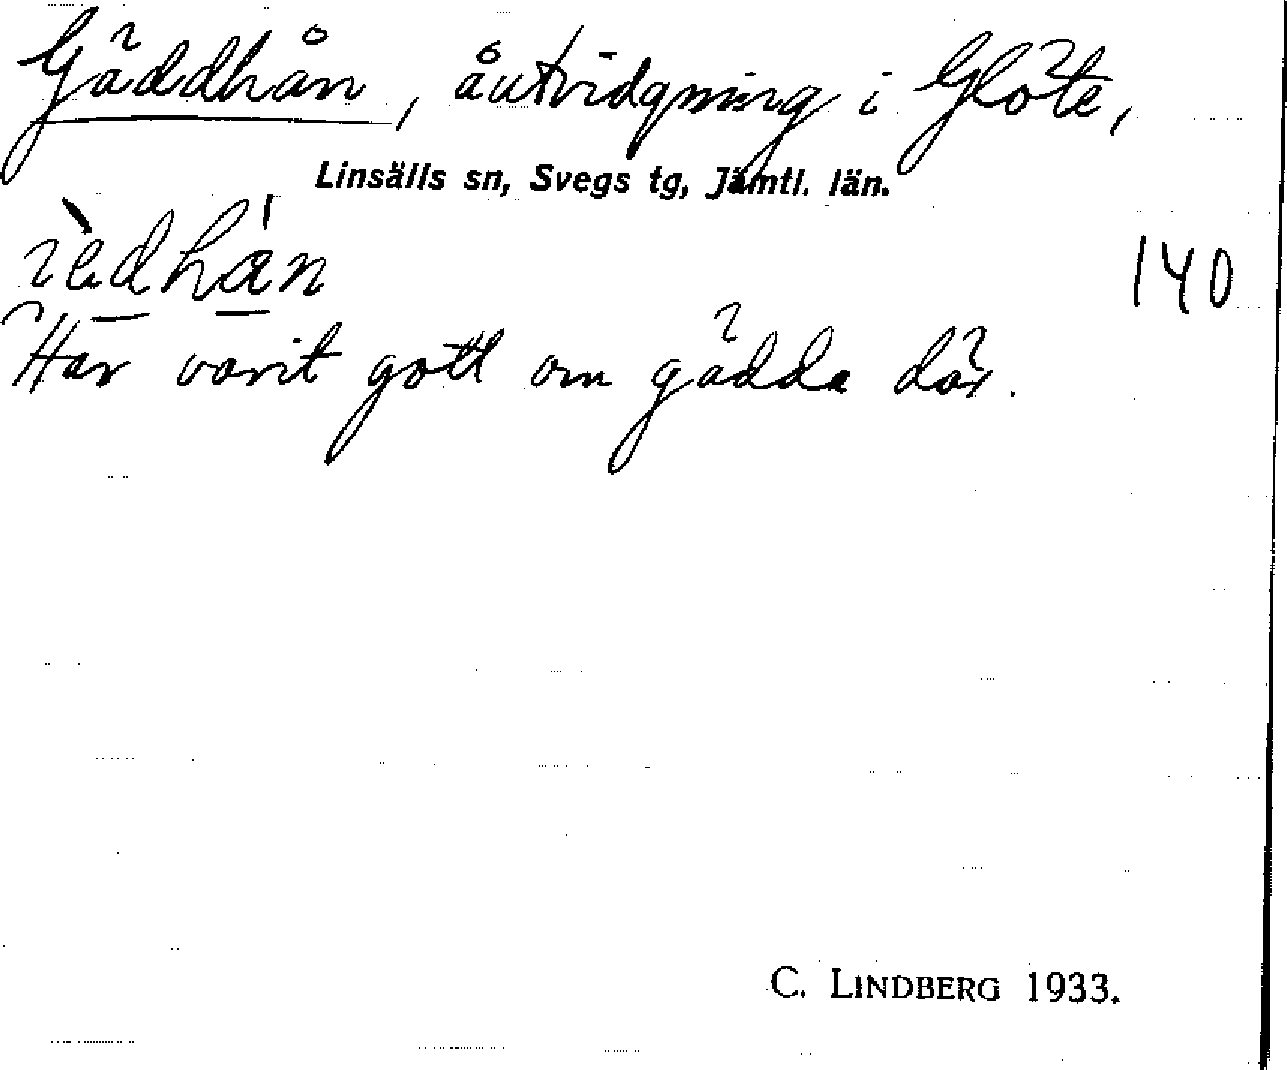 Gäddhån, åutvidgning i Glöte,
Linsälls sn, Svegs tg, Jämtl. län.
140
Har varit gott om gädda där.
C. LINDBERG 1933.